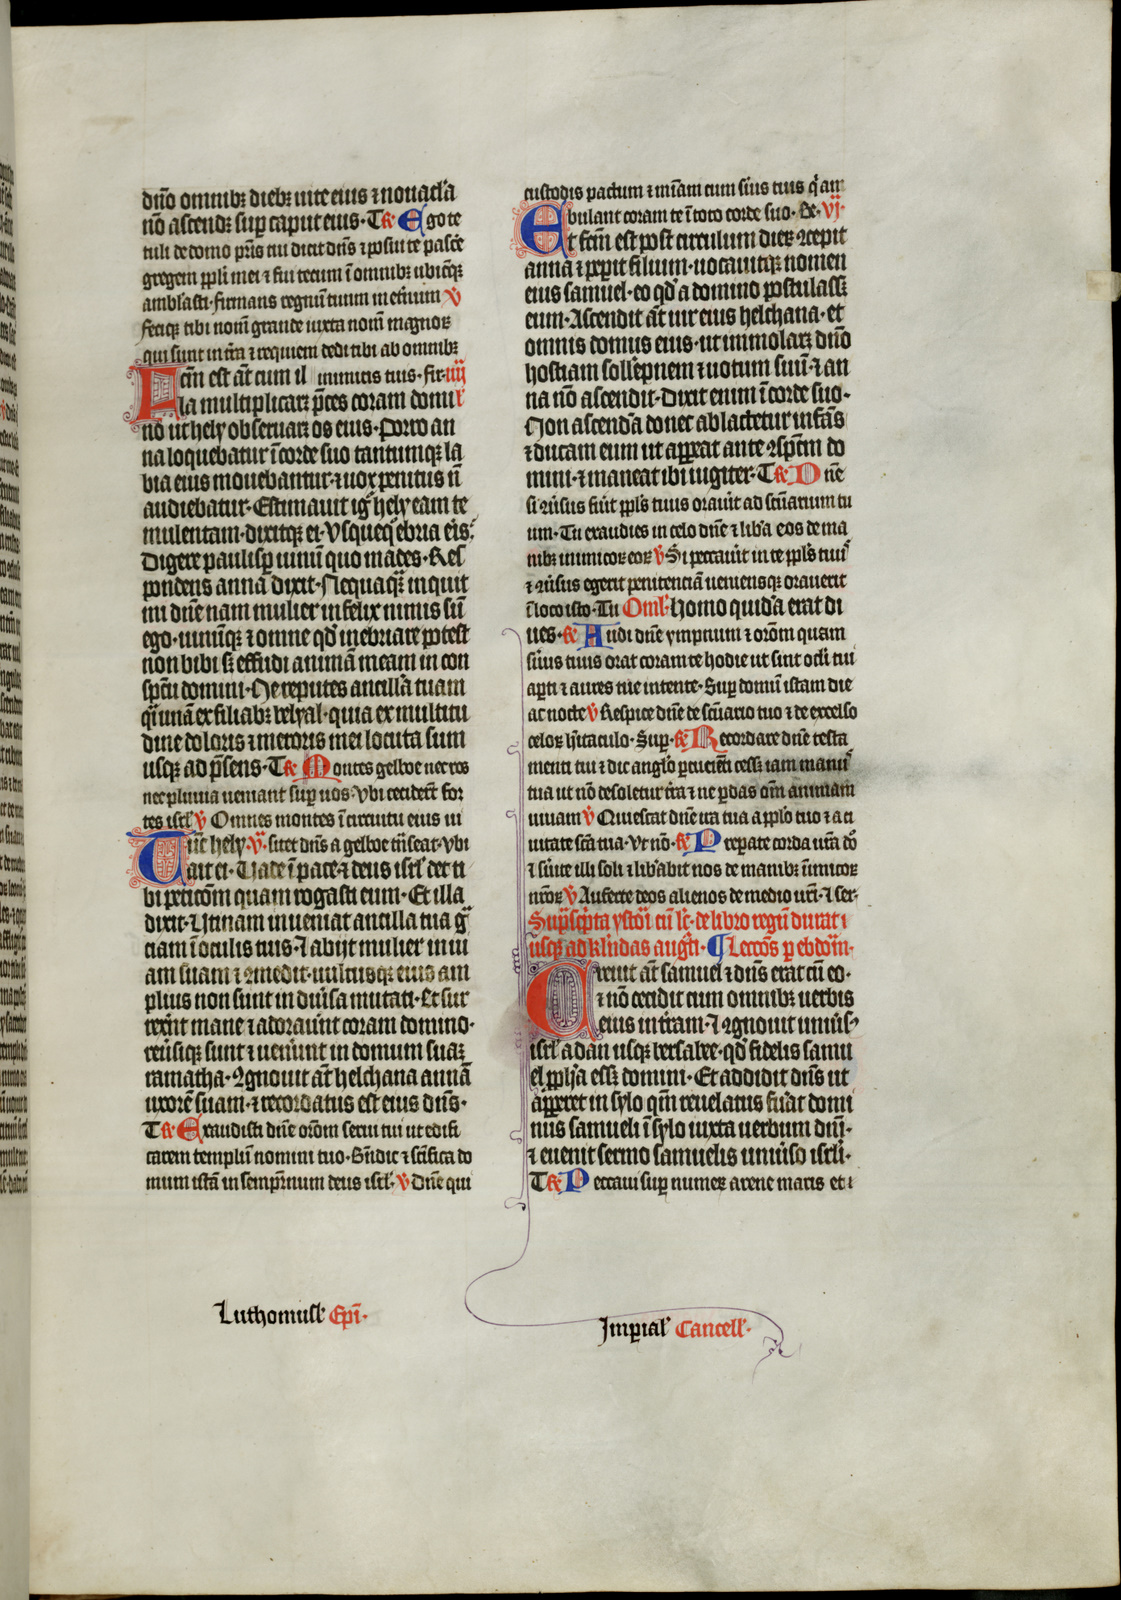 dn̄o omnibꝫ diebꝫ uite eius ⁊ nouacl'a
nō ascendꝫ suꝑ caput eius · T ꝶ Ego te
tuli de domo pr̄is tui dicit dn̄s ⁊ posui te pasce
gregem ppl̄i mei ⁊ fui tecum ī omnibꝫ ubicūqꝫ
ambl'asti · firmans regnū tuum in et'num ꝟ
feciqꝫ tibi nom̄ grande iuxta nom̄ magnoꝝ
qui sunt in t'ra ⁊ requiem dedi tibi ab omnibꝫ
Fcm̄ est aūt cum il inimicis tuis · fir · iiij
la multiplicarꝫ p̄ces coram domi
no ut hely obseruarꝫ os eius · Porro an
na loquebatur ī corde suo tantumqꝫ la
bia eius mouebantur · ⁊ uox penitus n̄
audiebatur · Estimauit ig' hely eam te
mulentam · dixitqꝫ ei · Vsquequo ebria eris ·
Digere paulisꝑ uinū quo mades · Res
pondens anna dixit · Nequaquā inquit
mi dn̄e nam mulier infelix nimis sū
ego · uinūqꝫ ⁊ omne qd̄ inebriare potest
non bibi sꝫ effudi animā meam in con
spc̄u domini · Ne reputes ancill'a tuam
qi unā ex filiabꝫ belyal · quia ex multitu
dine doloris ⁊ meroris mei locuta sum
usqꝫ ad p̄sens · T ꝶ Montes gelboe nec ros
nec pluuia ueniant suꝑ uos · Vbi ceciderūt for
tes isrl̄ ꝟ Omnes montes ī circuitu eius ui
Tūc hely · v · sitet dn̄s a gelboe t̄nseat · Vbi
ait ei · Uade ī pace · ⁊ deus isrl̄ det ti
bi peticōm quam rogasti eum · Et illa
dixit · Utinam inueniat ancilla tua gr̄
ciam ī oculis tuis · ⁊ abijt mulier in ui
am suam ⁊ ꝯmedit · uultusqꝫ eius am
plius non sunt in diu'sa mutati · Et sur
rexer̄t mane ⁊ adorauer̄t coram domino ·
reu'siqꝫ sunt ⁊ uener̄unt in domum suaꝫ
ramatha · ꝯgnouit aūt helchana annā
uxorē suam · ⁊ recordatus est eius dn̄s ·
T ꝶ Exaudisti dn̄e or̄om serui tui ut edifi
carem templū nomini tuo · Bn̄dic ⁊ sc̄ifica do
mum istā in sempit'num deus isrl̄ · ꝟ Dn̄e qui
custodis pactum ⁊ mi̅am cum s'uis tuis q̄ am
bulant coram te ī toto corde suo · Be · vj ·
Et fcm̄ est post circulum dieꝝ ꝯcepit
anna ⁊ peperit filium · uocauitqꝫ nomen
eius samuel · eo qd̄ a domino postulassꝫ
eum · Ascendit aūt uir eius helchana · et
omnis domus eius · ut immolarꝫ dn̄o
hostiam sollēpnem ⁊ uotum suū · ⁊ an
na nō ascendit · Dixit enim ī corde suo ·
Non ascend'a donec ablactetur infās
⁊ ducam eum ut appareat ante ꝯspc̄m do
mini · ⁊ maneat ibi iugiter · T ꝶ Dn̄e
si ꝯu'sus fu'it ppl̄s tuus orau'it ad sc̄uarium tu
um · Tu exaudies in celo dn̄e ⁊ lib'a eos de ma
nibꝫ inimicoꝝ eoꝝ ꝟ Si peccau'it in te ppl̄s tuus
⁊ ꝯu'sus egerit penitenciā ueniensqꝫ orauerit
ī loco isto · Tu Oml'· Homo quid'a erat di
ues · ꝶ Audi dn̄e ympnum ⁊ or̄om quam
s'uus tuus orat coram te hodie ut sint oc̄li tui
apti ⁊ aures tue intente · Suꝑ domū istam die
ac nocte ꝟ Respice dn̄e de sc̄uario tuo ⁊ de excelso
celoꝝ h'itaculo · Suꝑ · ꝶ Recordare dn̄e testa
menti tui ⁊ dic angl'o ꝑcucienti cessꝫ iam manus
tua ut nō desoletur t'ra ⁊ ne perdas om̄ animam
uiuam ꝟ Quiescat dn̄e ira tua a ppl̄o tuo ⁊ a ci
uitate sc̄a tua · Vt nō · ꝶ Preparate corda ur̄a dn̄o
⁊ s'uite illi soli ⁊ lib'abit nos de manibꝫ inimicoꝝ
nr̄oꝝ ꝟ Auferte deos alienos de medio ur̄i · ⁊ ser ·
Sup̄scp̄ta ystoi̅ cū le̅ · de libro regū durat
usqꝫ ad kl'endas augu̅ti · ¶ Lecco̅s p ebdom̅ ·
Creuit aūt samuel ⁊ dn̄s erat cū eo ·
⁊ nō cecidit eum omnibꝫ uerbis
eius in t'ram · ⁊ ꝯgnouit uniu's
isrl̄ a dan usqꝫ bersabee · qd̄ fidelis samu
el pph̄a essꝫ domini · Et addidit dn̄s ut
apparet in sylo qm̄ reuelatus fu'at domi
nus samueli ī sylo iuxta uerbum dn̄i ·
⁊ euenit sermo samuelis uniu'so isrl̄i ·
T ꝶ Peccaui suꝑ numeꝝ arene maris et
Luthomusl' Ep̄i ·
Imperial' Cancell' ·